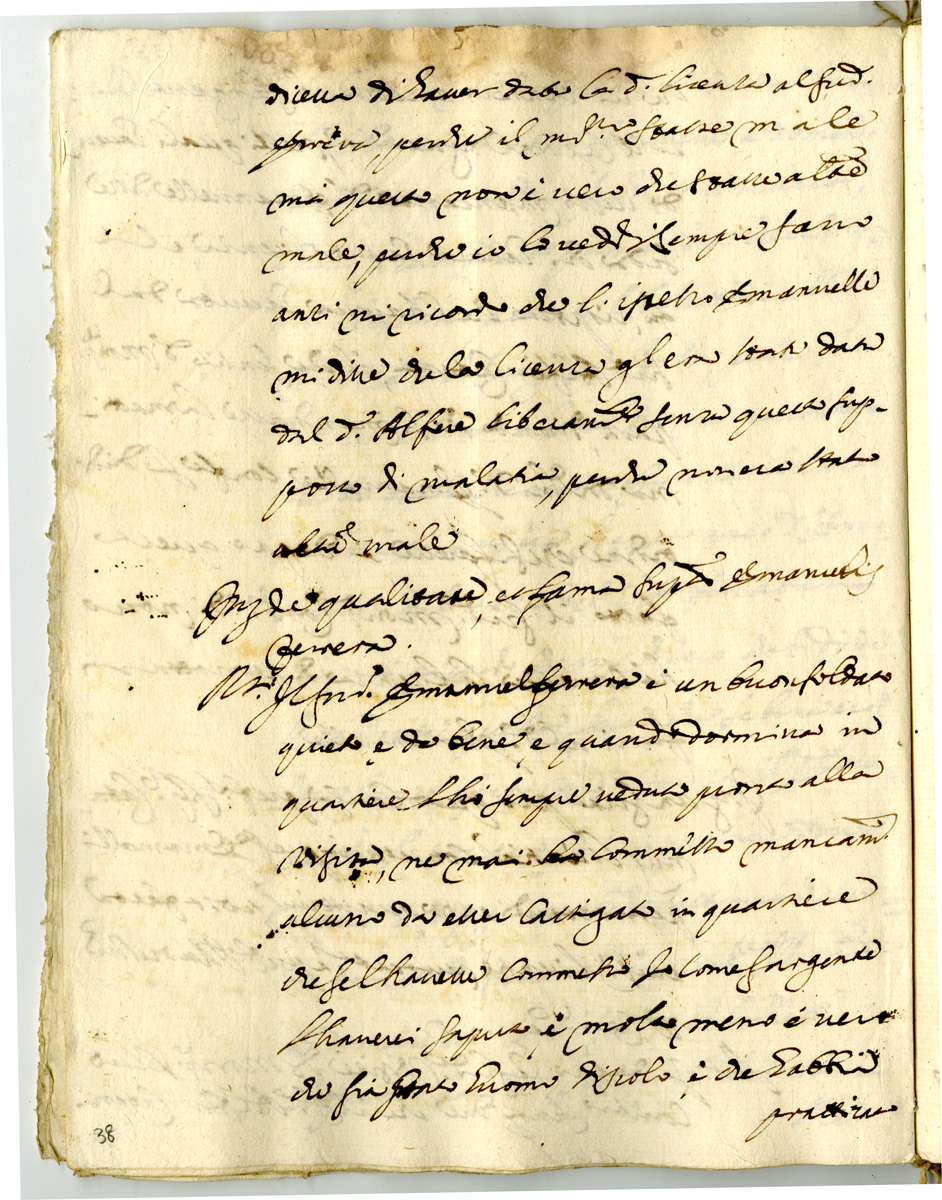 diceva di haver dato la d.ª licenza al sud.º
perche il stasse male
mà questo non è vero che stasse all'hora
male, perche io lo veddi sempre sano
anzi mi ricordo che l'istesso Emanuelle
mi disse che la licenza gl'era stata data
dal d.º Alfiere liberam.te senza questo sup-
posto di malatia, perche non era stato
male
de qualitate, et fama Emanuelis
Ferrera.
R.t Il sud.º Emanuel Ferrera è un buon soldato
quieto e da bene e quando dormiva in
quartiere l'hò sempre veduto pronto alla
visita, ne mai commesso mancam.to
alcuno da esser castigato in quartiere
che se l'havesse commesso Io come sargente
l'haverei saputo e molto meno è vero
che sia stato huomo discolo e che habbia
pratticato
38